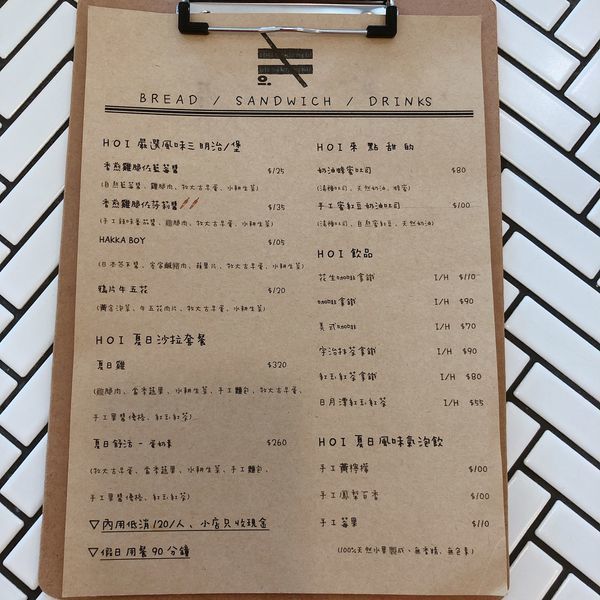 BREAD / SANDWICH / DRINKS
HOI 嚴選風味三明治/堡
香煎雞腿佐藍莓醬 $125
(自熬藍莓醬、雞腿肉、牧大古早蛋、水耕生菜)
香煎雞腿佐莎莉醬 $135
(手工辣味蕃茄醬、雞腿肉、牧大古早蛋、水耕生菜)
HAKKA BOY $105
(日本芥子醬、客家鹹豬肉、蘋果片、牧大古早蛋、水耕生菜)
鴉片牛五花 $120
(黃金泡菜、牛五花肉片、牧大古早蛋、水耕生菜)
HOI 夏日沙拉套餐
夏日雞 $320
(雞腿肉、當季蔬果、水耕生菜、手工麵包、牧大古早蛋、
手工果醬優格、紅玉紅茶)
夏日舒活 - 蛋奶素 $260
(牧大古早蛋、當季蔬果、水耕生菜、手工麵包、
手工果醬優格、紅玉紅茶)
▽內用低消120/人、小店只收現金
▽假日用餐90分鐘
HOI 來點甜的
奶油蜂蜜吐司 $80
(湯種吐司、天然奶油、蜂蜜)
手工蜜紅豆奶油吐司 $100
(湯種吐司、自熬蜜紅豆、天然奶油)
HOI 飲品
花生 拿鐵 I/H $110
拿鐵 I/H $90
美式 I/H $70
宇治抹茶拿鐵 I/H $90
紅玉紅茶拿鐵 I/H $80
日月潭紅玉紅茶 I/H $55
HOI 夏日風味氣泡飲
手工黃檸檬 $100
手工鳳梨百香 $100
手工莓果 $110
(100%天然水果製成、無香精、無色素)